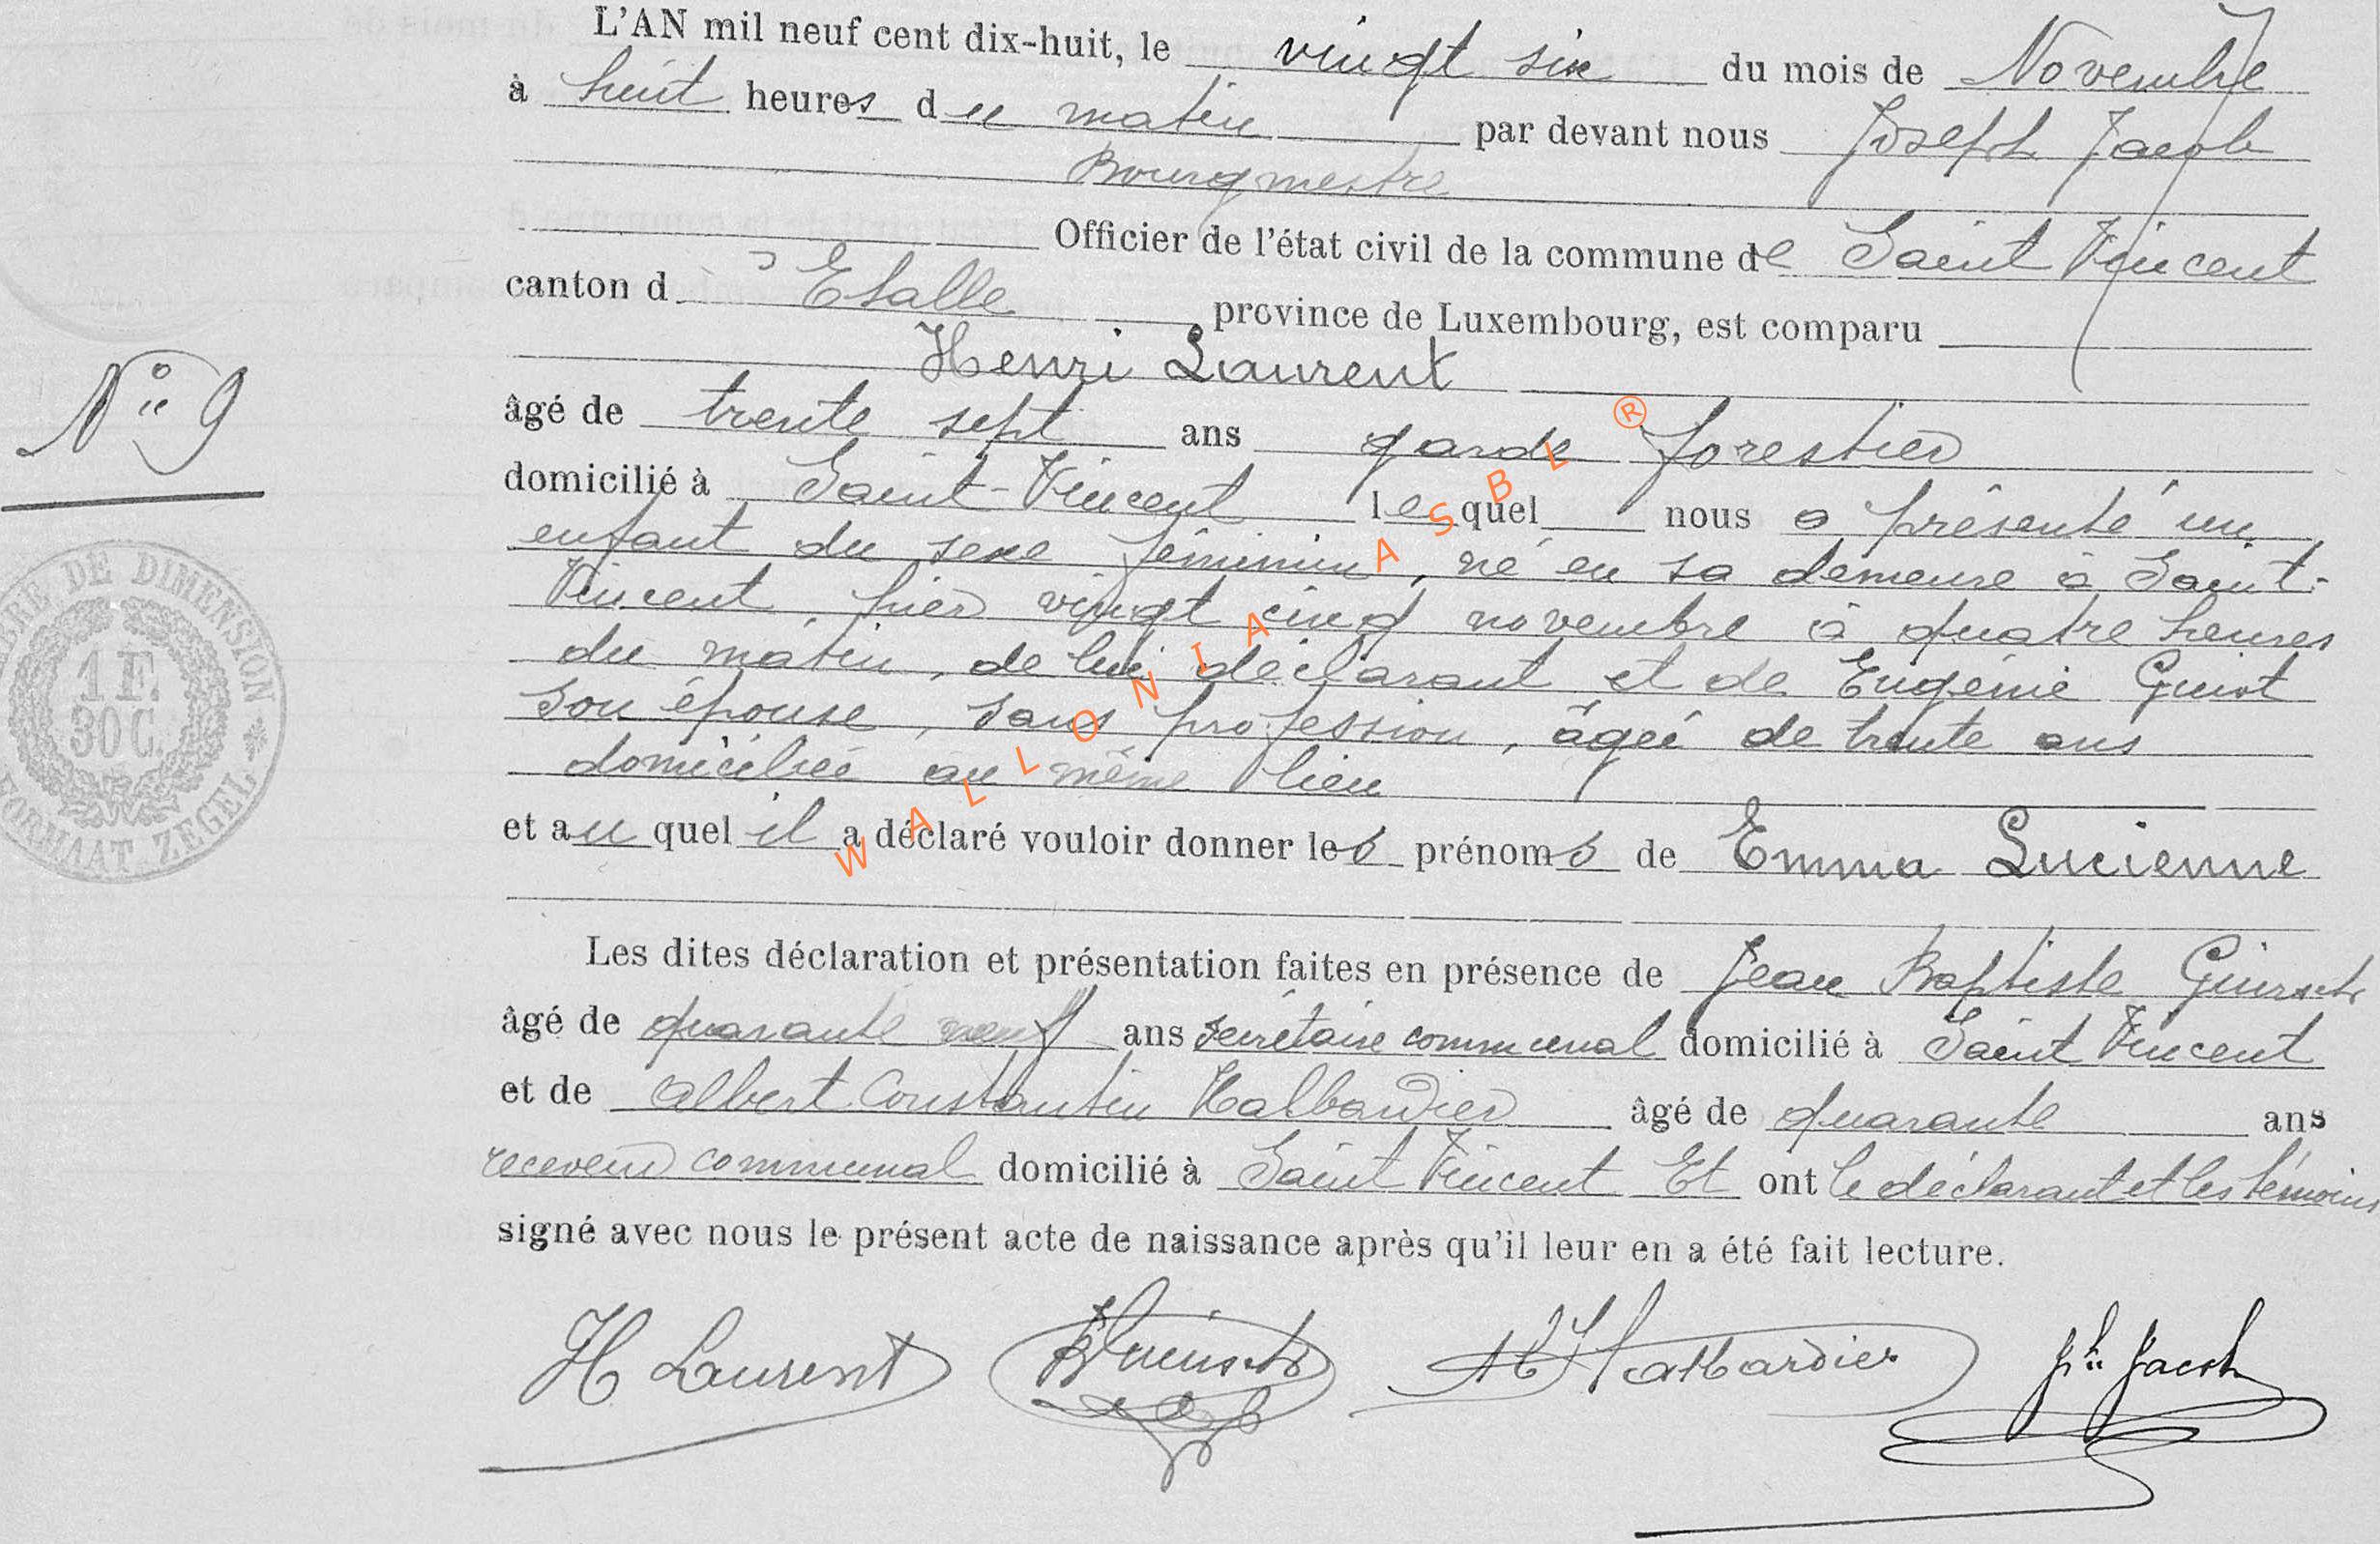 L'AN mil neuf cent dix-huit, le vingt six du mois de Novembre
à huit heures du matin par devant nous Joseph Jacob
Bourgmestre
Officier de l'état civil de la commune de Saint Vincent
canton d'Etalle province de Luxembourg, est comparu
Henri Laurent
N° 9
âgé de trente sept ans garde forestier
domicilié à Saint-Vincent lequel nous a présenté un
enfant du sexe féminin, né en sa demeure à Saint-
Vincent, hier vingt cinq novembre à quatre heures
du matin, de lui déclarant et de Eugénie Guiot
son épouse, sans profession, âgée de trente ans
domiciliée au même lieu
et au quel il a déclaré vouloir donner les prénoms de Emma Lucienne
Les dites déclaration et présentation faites en présence de Jean Baptiste
âgé de quarante neuf ans secrétaire communal domicilié à Saint Vincent
et de Albert Constantin Halbardier âgé de quarante ans
receveur communal domicilié à Saint Vincent Et ont le déclarant et les témoins
signé avec nous le présent acte de naissance après qu'il leur en a été fait lecture.
H Laurent Halbardier Jh Jacob
DE DIMENSION
1 F.
30 C.
FORMAAT ZEGEL
WALLONIA ASBL ®